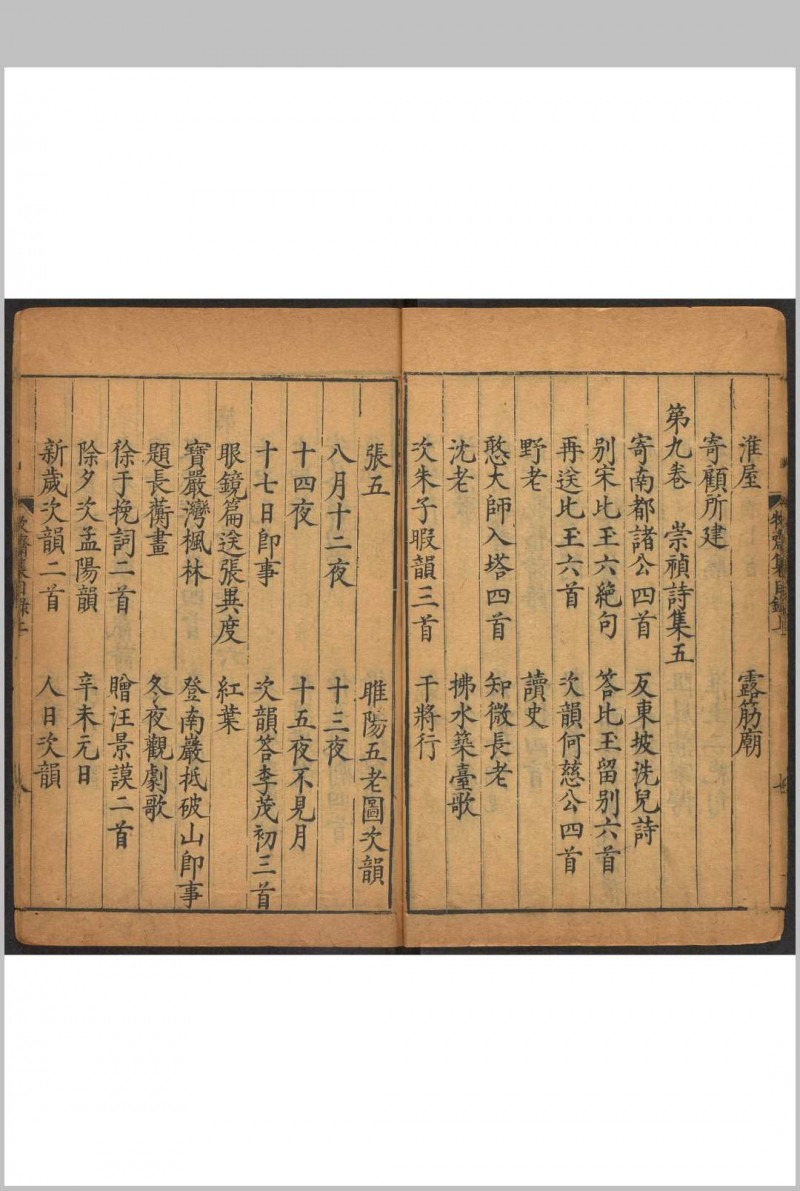 淮屋　露筋廟
寄顧所建
第九卷　崇禎詩集五
寄南都諸公四首　反東坡洗兒詩
別宋比玉六絕句　答比玉留別六首
再送比玉六首　次韻何慈公四首
野老　讀史
憨大師入塔四首　知微長老
沈老　拂水築臺歌
次朱子暇韻三首　干將行
張五　睢陽五老圖次韻
八月十二夜　十三夜
十四夜　十五夜不見月
十七日卽事　次韻答李茂初三首
眼鏡篇送張異度　紅葉
寶嚴灣楓林　登南巖抵破山卽事
題長蘅畫　冬夜觀劇歌
徐于挽詞二首　贈汪景謨二首
除夕次孟陽韻　辛未元日
新歲次韻二首　人日次韻
牧齋集目錄上
八